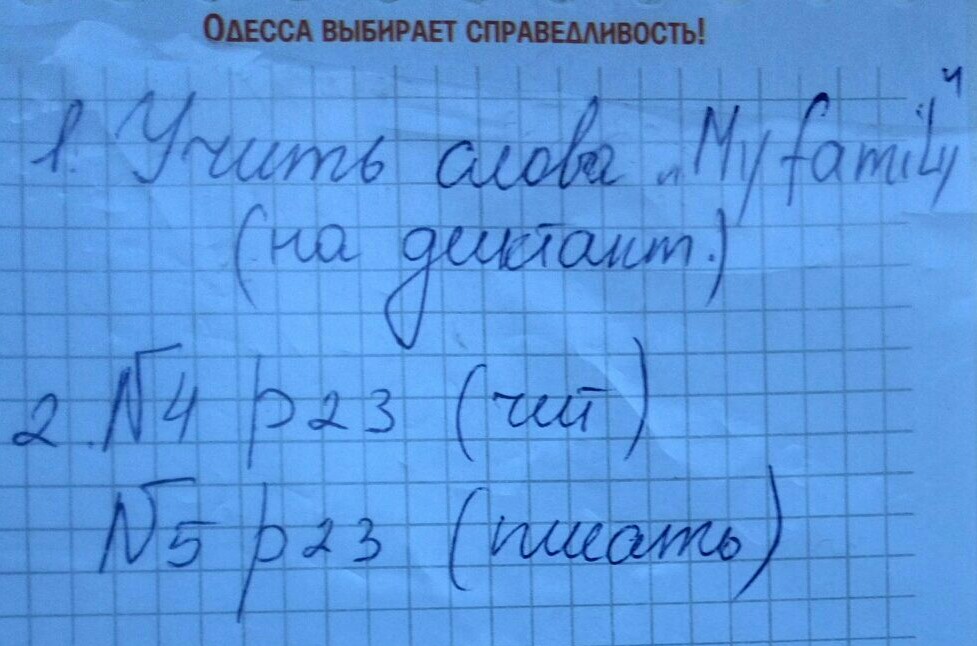 ОДЕССА ВЫБИРАЕТ СПРАВЕДЛИВОСТЬ!
1. Учить слова „My family“
(на диктант.)
2. N4 p 23 (чит)
N5 p 23 (писать)